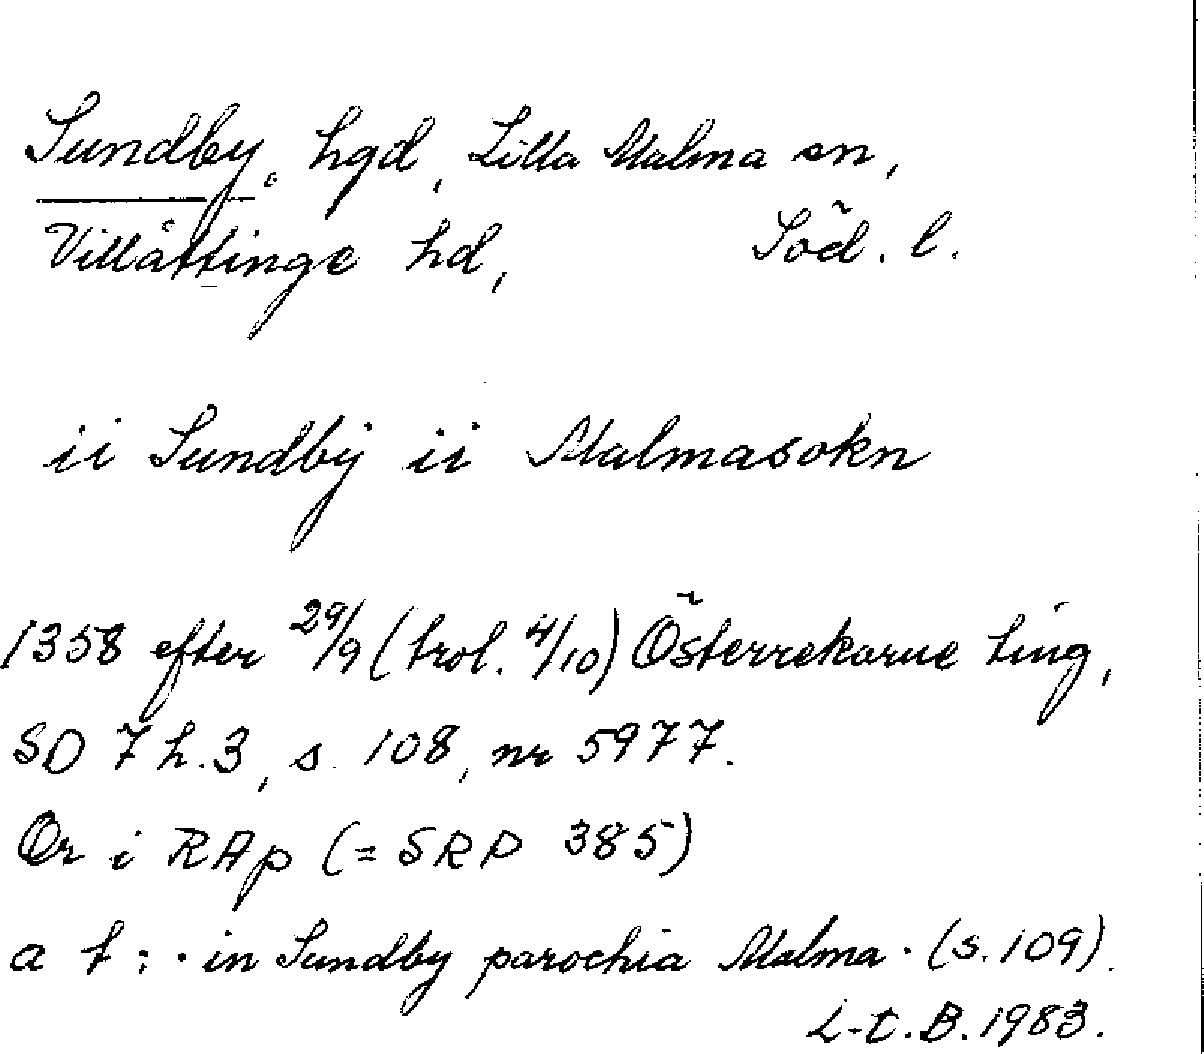 Sundby, hgd, Lilla Malma sn,
Villåttinge hd, Söd. l.
ii Sundbÿ ii Malmasokn
1358 efter 29/9 (trol. 4/10) Österrekarne ting,
SD 7 h.3, s. 108, nr 5977.
Or i RAp (= SRP 385)
a t: · in Sundby parochia Malma · (s. 109).
L-t. B. 1983.